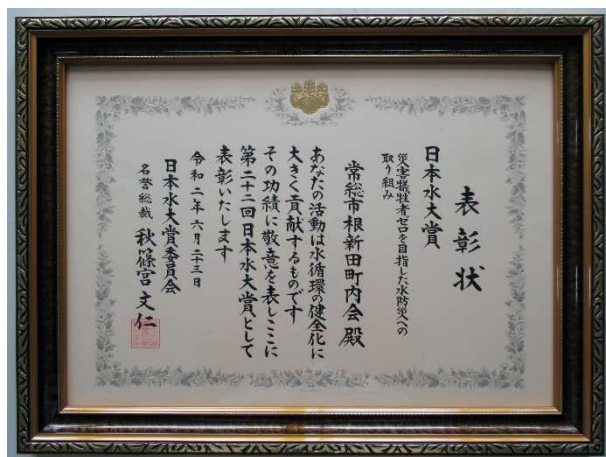 表彰状
日本水大賞
災害犠牲者ゼロを目指した水防災への
取り組み
常総市根新田町内会 殿
あなたの活動は水循環の健全化に
大きく貢献するものです
その功績に敬意を表しここに
第二十二回日本水大賞として
表彰いたします
令和二年六月二十三日
日本水大賞委員会
名誉総裁 秋篠宮文仁